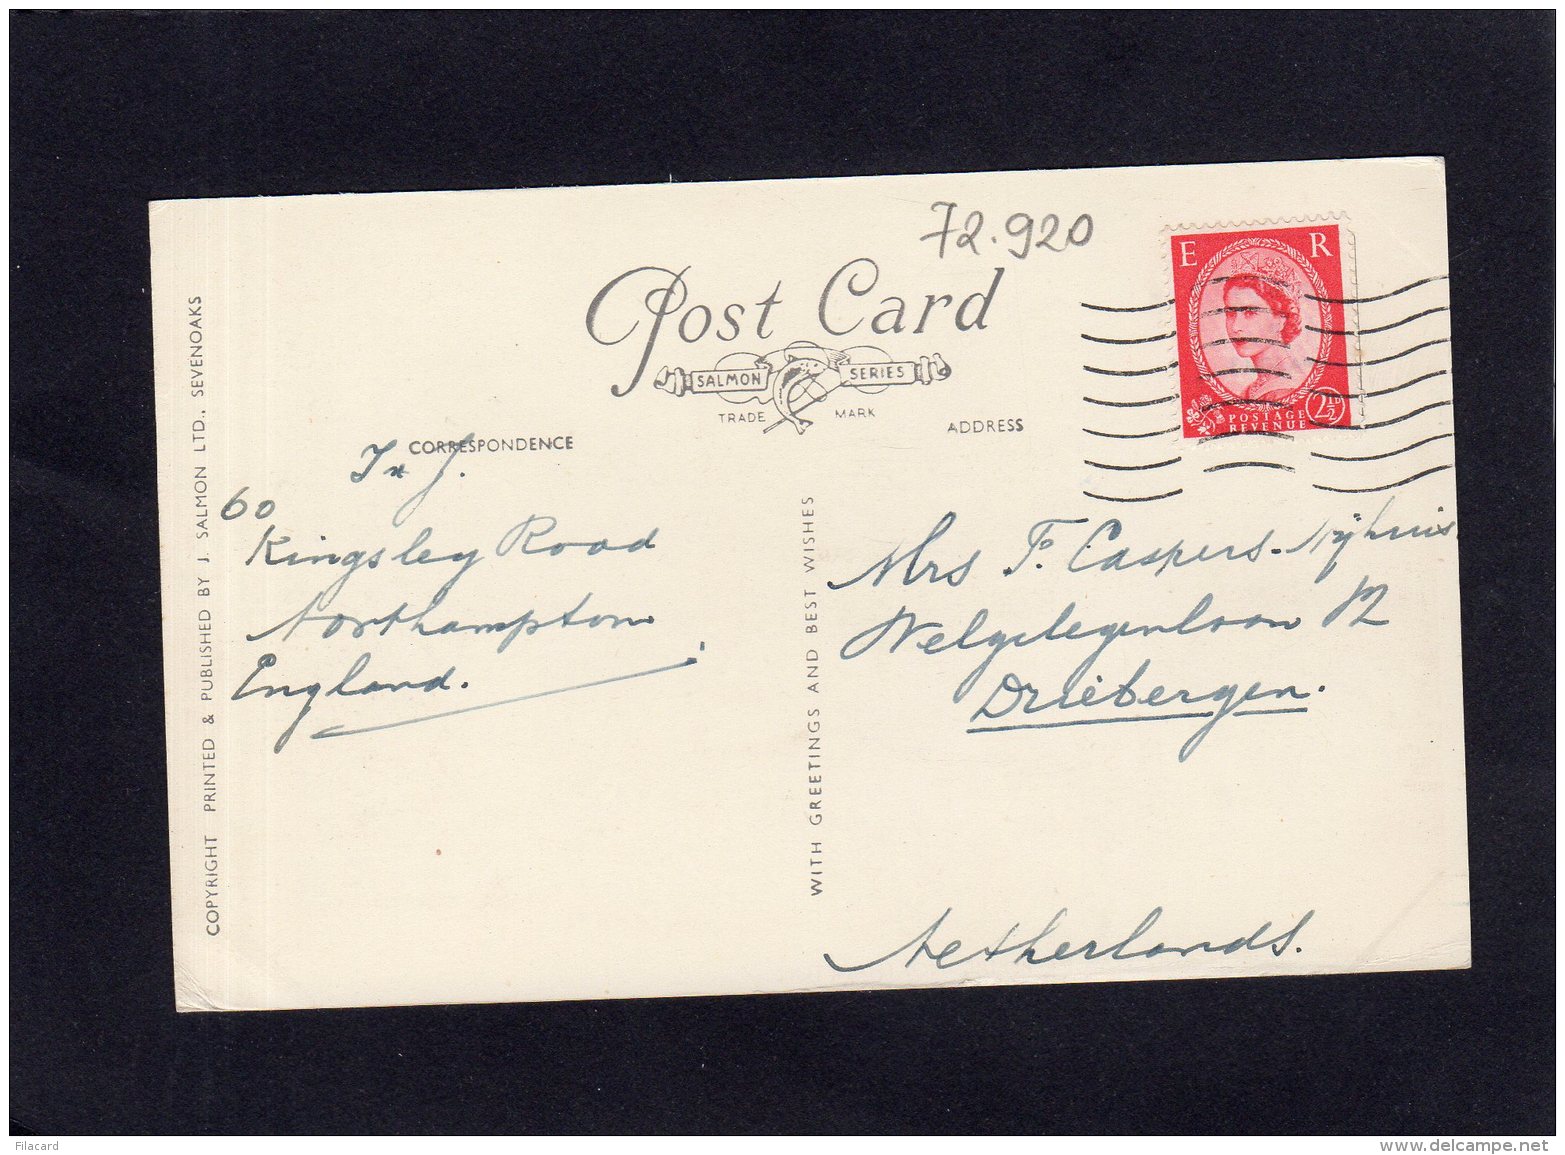 72.920
Post Card
SALMON SERIES
TRADE MARK
CORRESPONDENCE
ADDRESS
E R
POSTAGE
REVENUE
2½D
60
Kingsley Road
Northampton
England.
Mrs F. Caspers-Nijhuis
Driebergen.
Netherlands.
WITH GREETINGS AND BEST WISHES
COPYRIGHT PRINTED & PUBLISHED BY J. SALMON LTD., SEVENOAKS
Filacard
delcampe.net